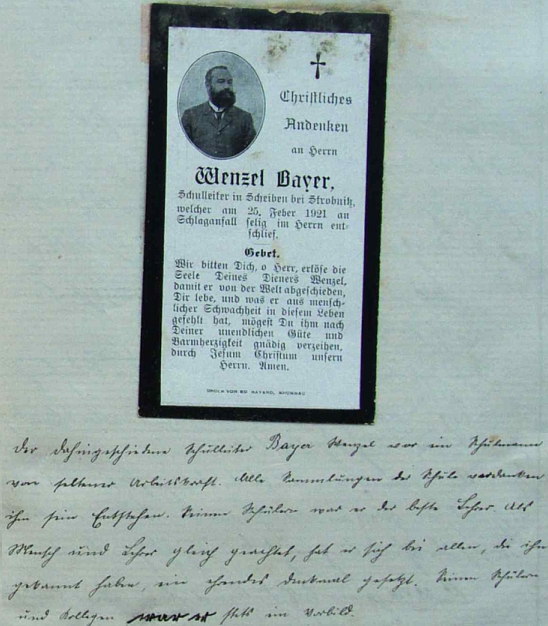 Christliches
Andenken
an Herrn
Wenzel Bayer,
Schulleiter in Scheiben bei Strobnitz,
welcher am 25. Feber 1921 an
Schlaganfall selig im Herrn ent-
schlief.
Gebet.
Wir bitten Dich, o Herr, erlöse die
Seele Deines Dieners Wenzel,
damit er von der Welt abgeschieden,
Dir lebe, und was er aus mensch-
licher Schwachheit in diesem Leben
gefehlt hat, mögest Du ihm nach
Deiner unendlichen Güte und
Barmherzigkeit gnädig verzeihen,
durch Jesum Christum unsern
Herrn. Amen.
DRUCK VON
Der dahingeschiedene Schulleiter Bayer Wenzel war ein Schulmann
von seltener Arbeitskraft. Alle Sammlungen der Schule verdanken
ihm sein Entstehen. Seinen Schülern war er der beste Lehrer. Als
Mensch und Lehrer gleich geachtet, hat er sich bei allen, die ihn
gekannt haben, ein ehrendes Denkmal gesetzt. Seinen Schülern
und Kollegen war er stets ein Vorbild.